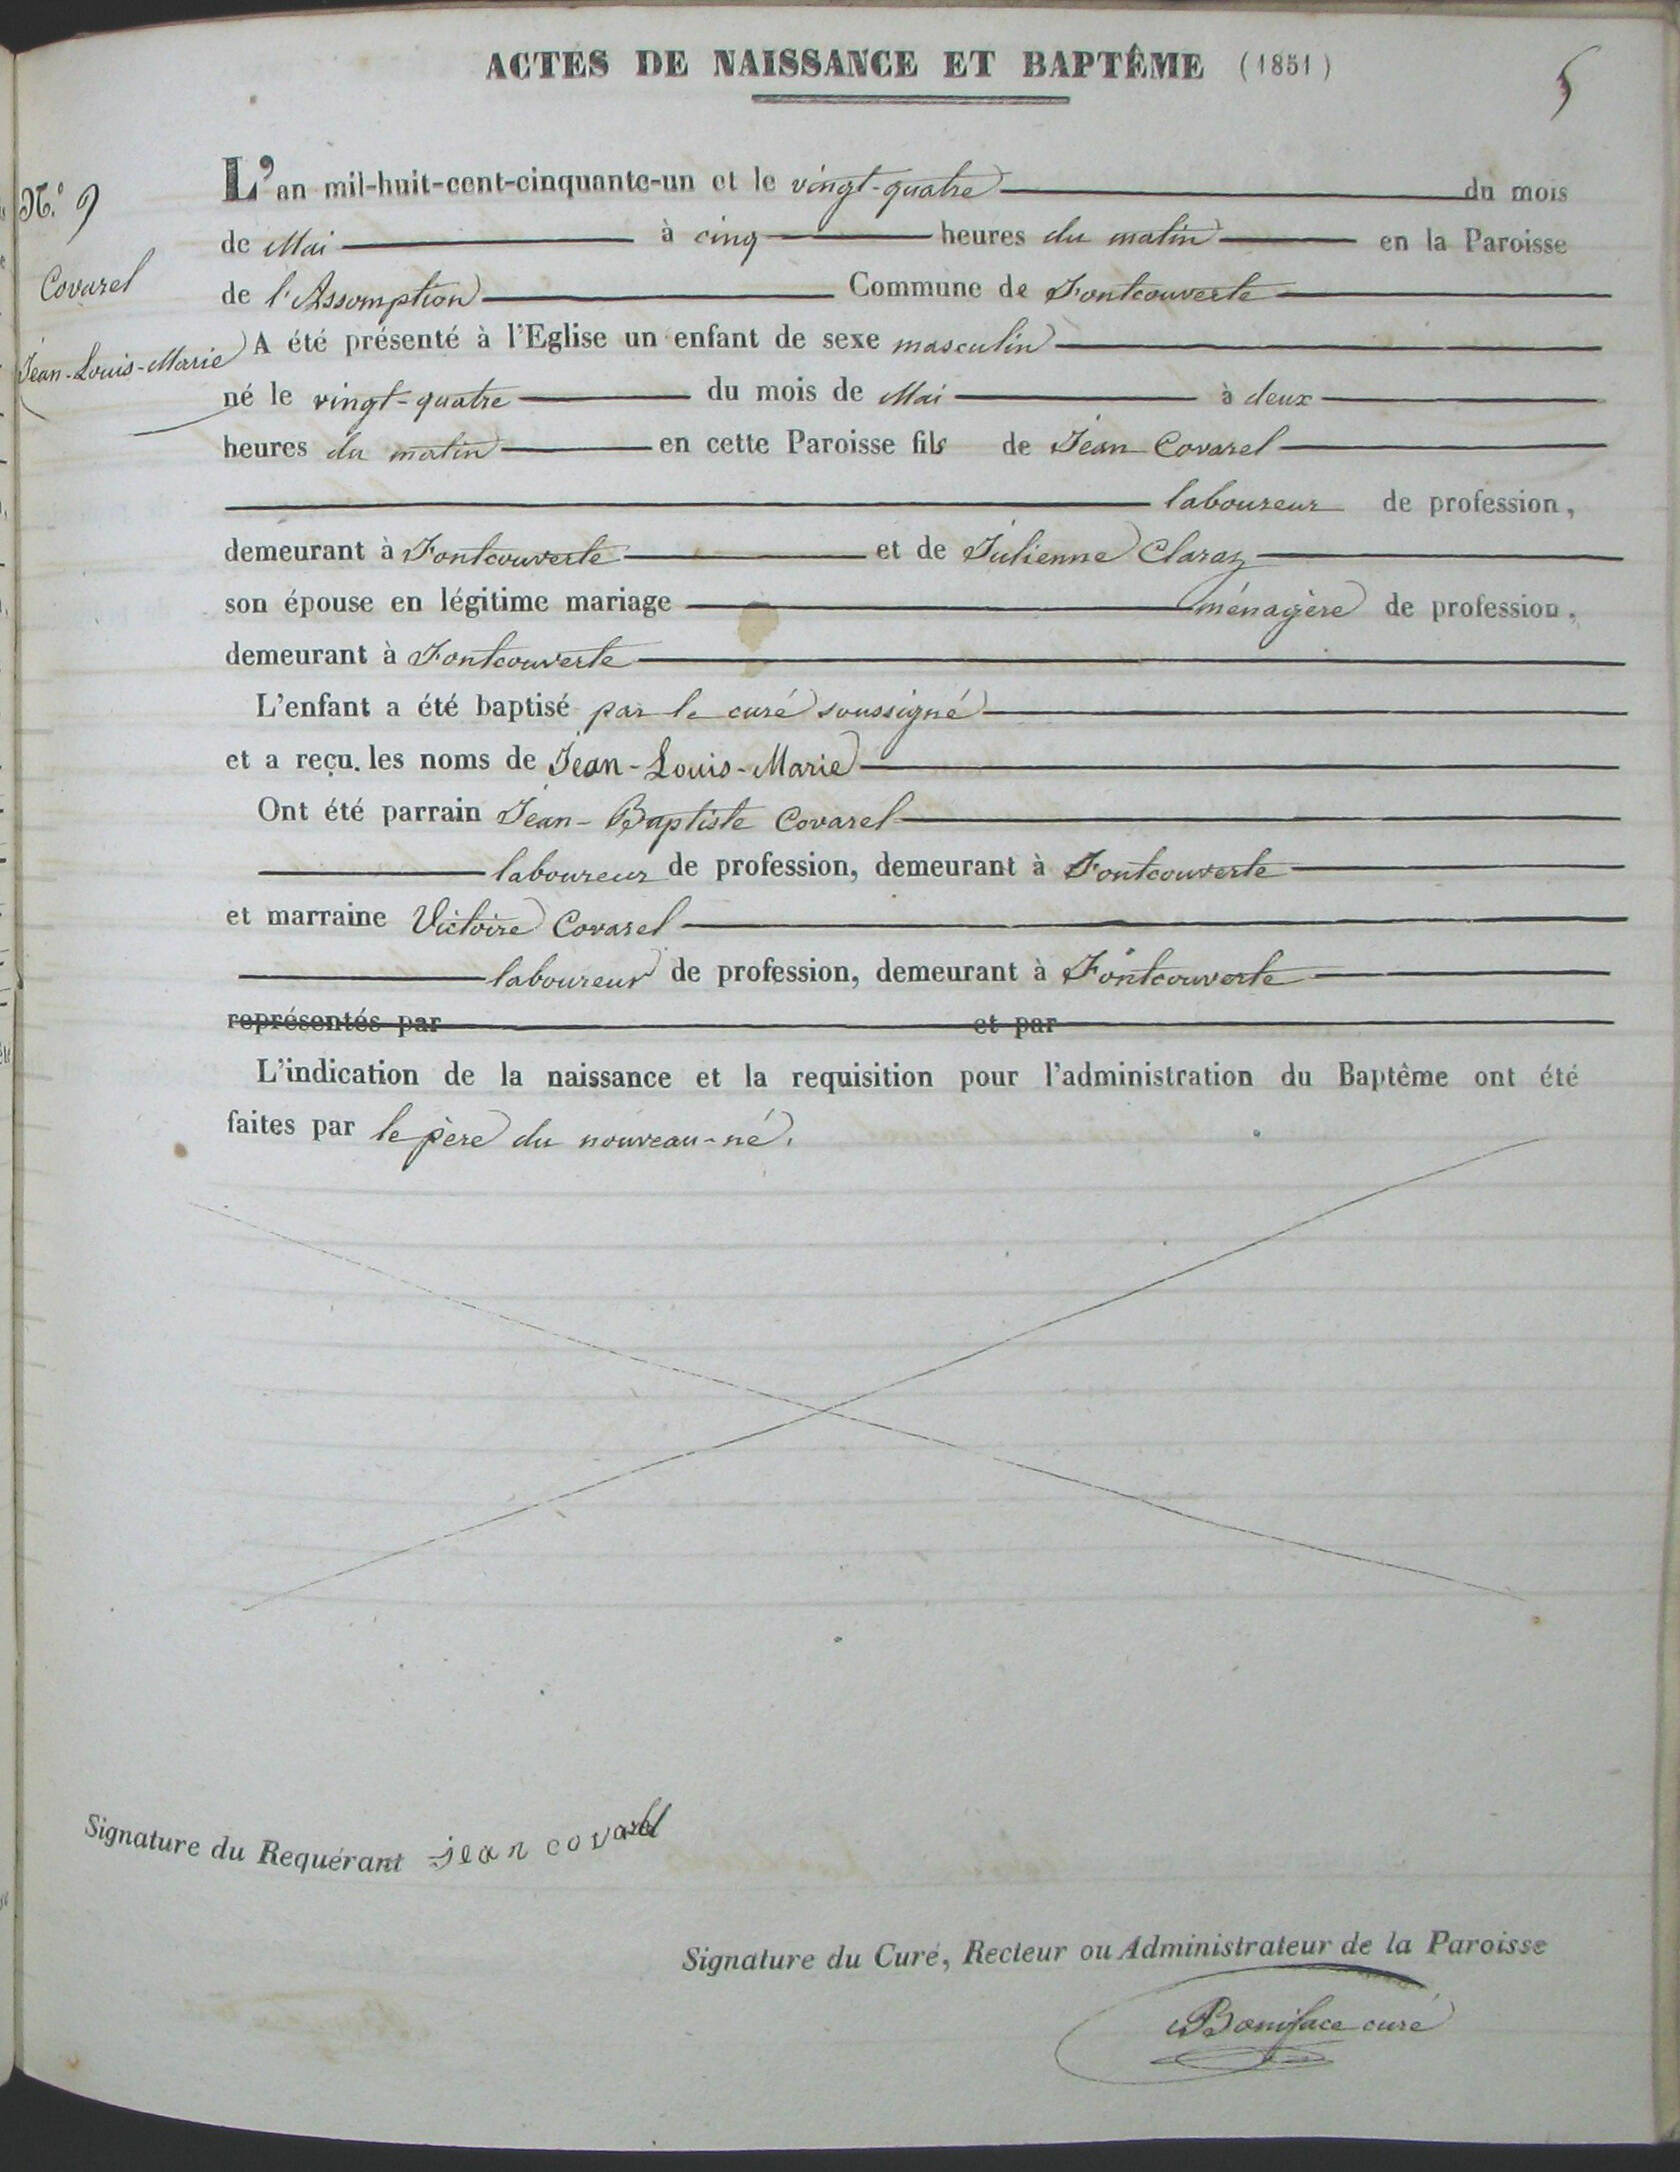 ACTES DE NAISSANCE ET BAPTÊME (1851)
5
N.° 9
Covarel
Jean-Louis-Marie
L'an mil-huit-cent-cinquante-un et le vingt-quatre du mois
de Mai à cinq heures du matin en la Paroisse
de l'Assomption Commune de Fontcouverte
A été présenté à l'Eglise un enfant de sexe masculin
né le vingt-quatre du mois de Mai à deux
heures du matin en cette Paroisse fils de Jean Covarel
laboureur de profession,
demeurant à Fontcouverte et de Julienne Claraz
son épouse en légitime mariage ménagère de profession,
demeurant à Fontcouverte
L'enfant a été baptisé par le curé soussigné
et a reçu les noms de Jean-Louis-Marie
Ont été parrain Jean-Baptiste Covarel
laboureur de profession, demeurant à Fontcouverte
et marraine Victoire Covarel
laboureur de profession, demeurant à Fontcouverte
représentés par et par
L'indication de la naissance et la requisition pour l'administration du Baptême ont été
faites par le père du nouveau-né.
Signature du Requérant jean covarel
Signature du Curé, Recteur ou Administrateur de la Paroisse
Boniface curé